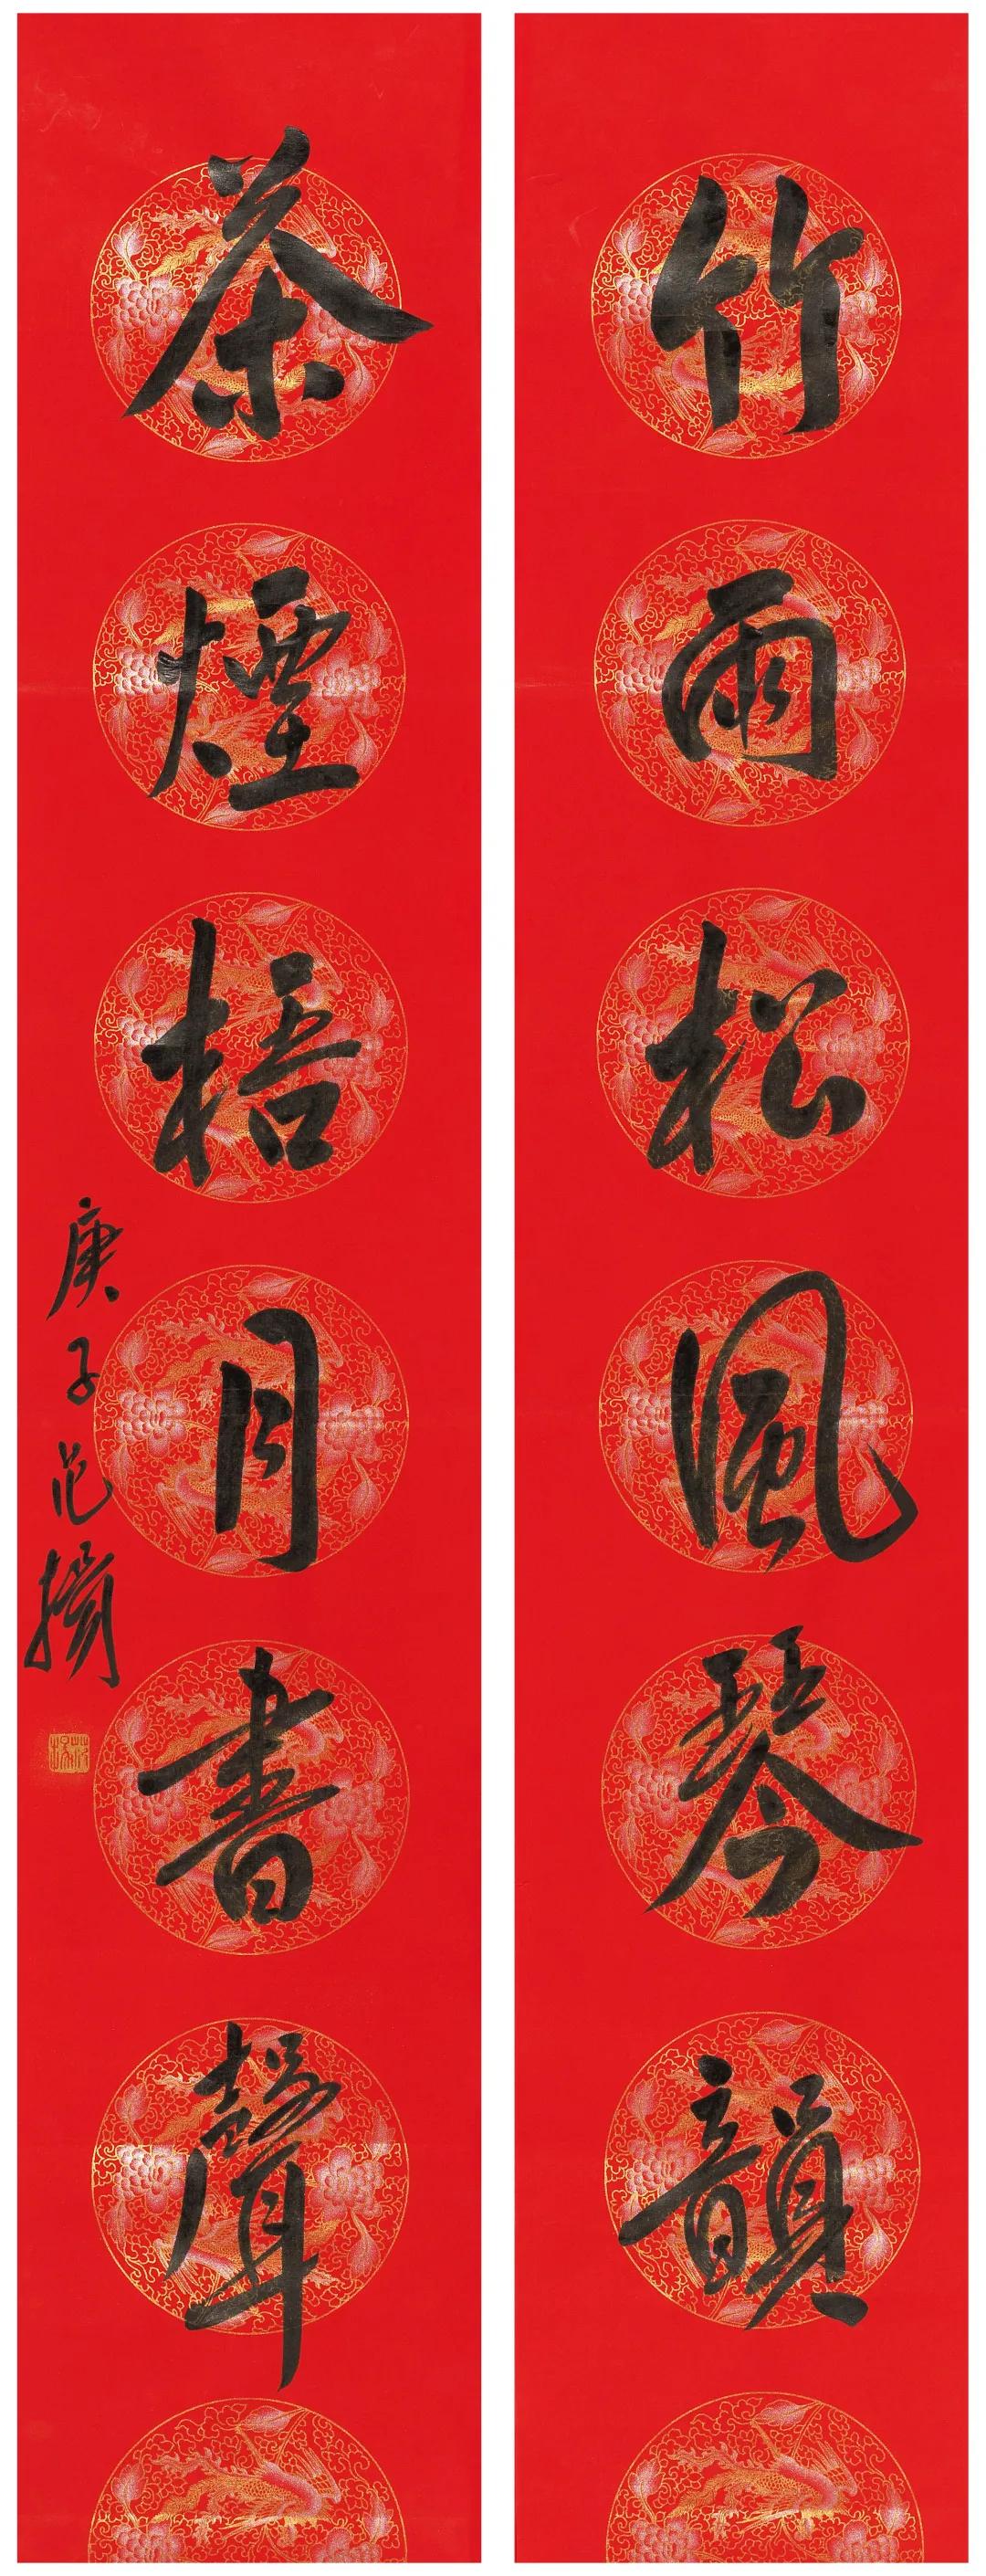 竹雨松風琴韻
茶煙梧月書聲
庚子范揚